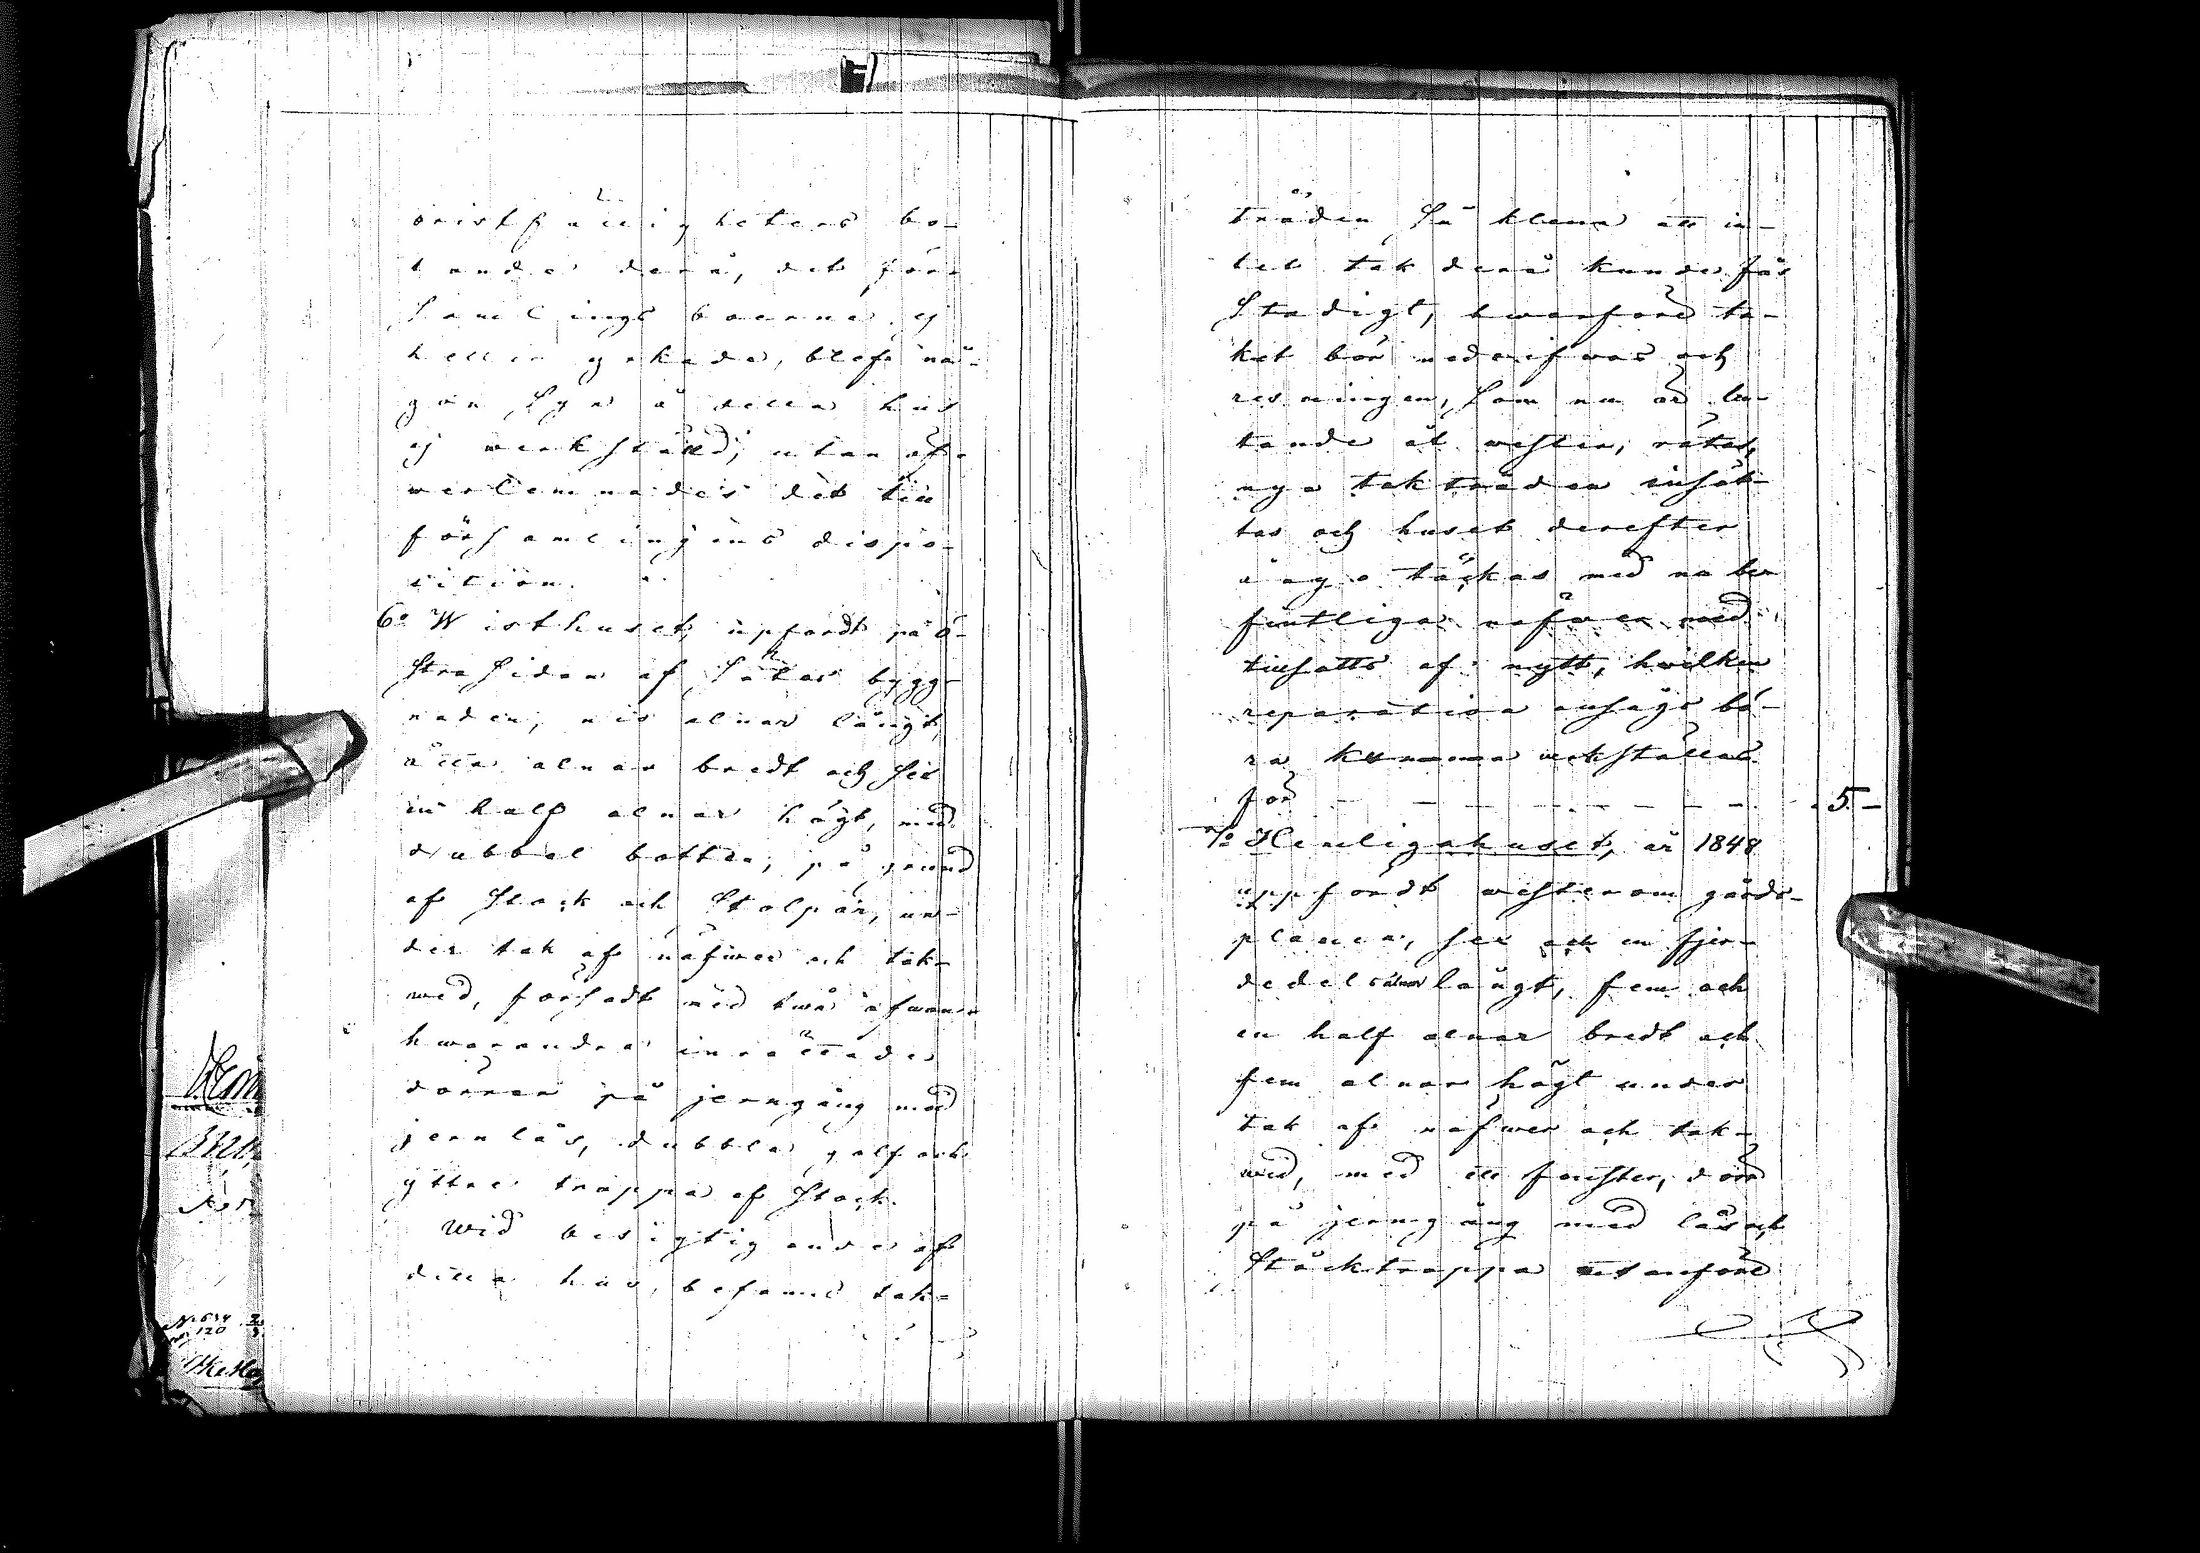 bristfälligheters bo-
tande derå, det för-
samlingsboerne ej
heller yrkade, blefe nå-
gon syn å detta hus
ej verkställd; utan öf-
verlemnades det till
församlingens dispo-
sition.
6o Wisthuset, uppfördt på ö-
stra sidan af Sätes bygg-
naden, nio alnar långt,
åtta alnar bredt och sex
en half alnar högt, med
dubbel botten, på grund
af stock och stolpar, un-
der tak af näfwer och tak-
wed, försedt med twå ofwan
hwarandra inrättade
dörrar på jerngång med
jernlås, dubbla golf och
yttre trappa af stock.
Wid besigtigande af
detta hus, befanns tak-
träden så klena att in-
tet tak derå kunde fås
stadigt, hwarföre ta-
ket bör nedrifwas och
resningen, som nu är lu-
tande åt wester, rätas,
nya takträden insät-
tas och huset derefter
å nyo täckas med na be-
fintliga näfwer med
tillsatts af nytt, hwilken
reparation ansågs bö-
ra kunna verkställas
för - - - - - - - - 5 -
7o Hemligahuset, år 1848
uppfördt westerom gårds-
planen, sex och en fjer-
dedels alnar långt, fem och
en half alnar bredt och
fem alnar högt under
tak af näfwer och tak-
wed, med ett fönster, dörr
på jerngång med lås och
stäcktrappa utanföre